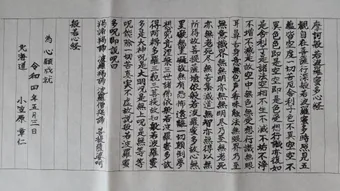 摩訶般若波羅蜜多心経
観自在菩薩行深般若波羅蜜多時照見五
蘊皆空度一切苦厄舎利子色不異空空不
異色色即是空空即是色受想行識亦復如
是舎利子是諸法空相不生不滅不垢不浄
不増不減是故空中無色無受想行識無眼
耳鼻舌身意無色声香味触法無眼界乃至
無意識界無無明亦無無明尽乃至無老死
亦無老死尽無苦集滅道無智亦無得以無
所得故菩提薩埵依般若波羅蜜多故心無
罣礙無罣礙故無有恐怖遠離一切顛倒夢
想究竟涅槃三世諸仏依般若波羅蜜多故
得阿耨多羅三藐三菩提故知般若波羅蜜
多是大神呪是大明呪是無上呪是無等等
呪能除一切苦真実不虚故説般若波羅蜜
多呪即説呪曰
羯諦羯諦波羅羯諦波羅僧羯諦菩提薩婆訶
般若心経
為心願成就
令和四年五月三日
北海道 小笠原章仁